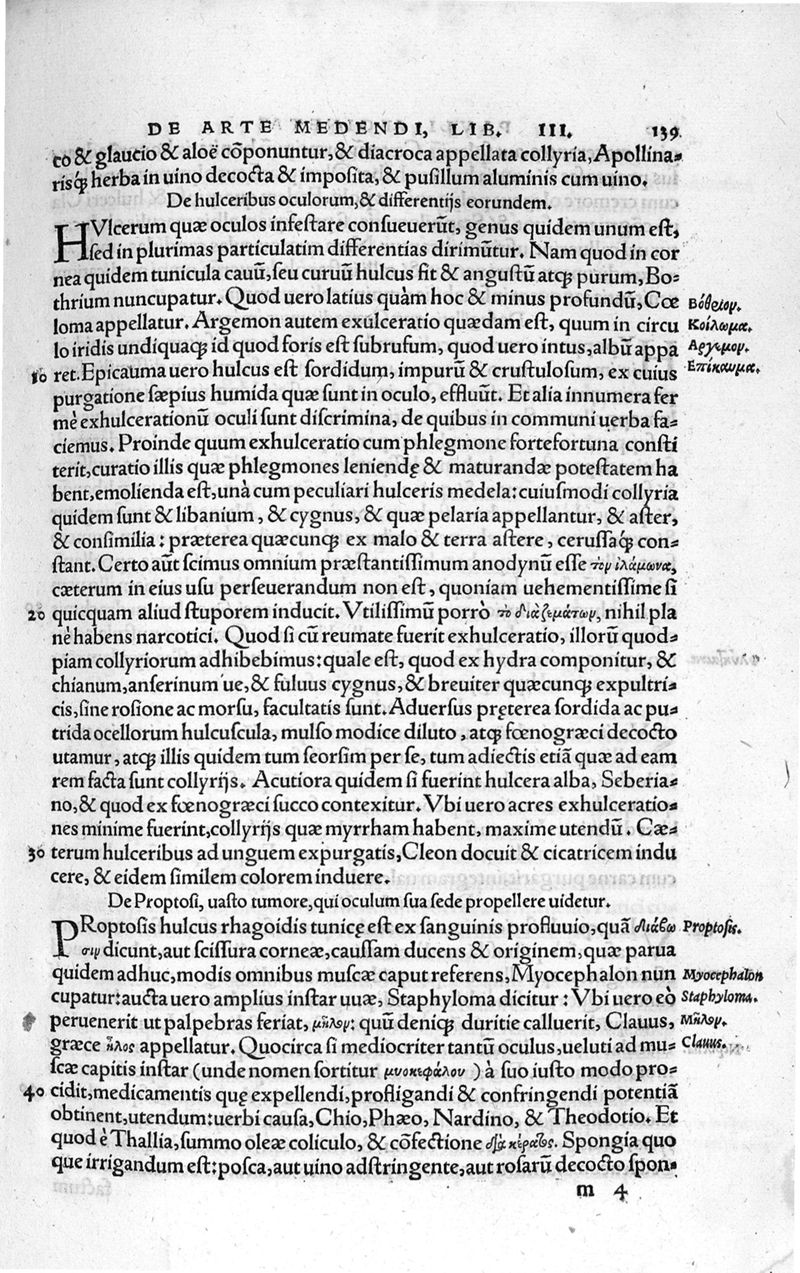 DE ARTE MEDENDI, LIB. III. 139
co & glaucio & aloë cōponuntur, & diacroca appellata collyria, Apollina-
risq; herba in uino decocta & imposita, & pusillum aluminis cum uino.
De hulceribus oculorum, & differentijs eorundem.
HVlcerum quæ oculos infestare consueuerūt, genus quidem unum est,
sed in plurimas particulatim differentias dirimūtur. Nam quod in cor
nea quidem tunicula cauū, seu curuū hulcus fit & angustū atq; purum, Bo-
thrium nuncupatur. Quod uero latius quàm hoc & minus profundū, Cœ
Βόθριον.
loma appellatur. Argemon autem exulceratio quædam est, quum in circu
Κοίλωμα.
lo iridis undiquaq; id quod foris est subrufum, quod uero intus, albū appa
Αργεμον.
10 ret. Epicauma uero hulcus est sordidum, impurū & crustulosum, ex cuius
Επίκαυμα.
purgatione sæpius humida quæ sunt in oculo, effluūt. Et alia innumera fer
mè exhulcerationū oculi sunt discrimina, de quibus in communi uerba fa-
ciemus. Proinde quum exhulceratio cum phlegmone fortefortuna consti
terit, curatio illis quæ phlegmones leniendę & maturandæ potestatem ha
bent, emolienda est, unà cum peculiari hulceris medela: cuiusmodi collyria
quidem sunt & libanium, & cygnus, & quæ pelaria appellantur, & aster,
& consimilia: præterea quæcunq; ex malo & terra astere, cerussaq; con-
stant. Certo aūt scimus omnium præstantissimum anodynū esse τὸν ἰλάμωνα,
cæterum in eius usu perseuerandum non est, quoniam uehementissime si
20 quicquam aliud stuporem inducit. Vtilissimū porrò τὸ διαζεμάτων, nihil pla
nè habens narcotici. Quod si cū reumate fuerit exhulceratio, illorū quod-
piam collyriorum adhibebimus: quale est, quod ex hydra componitur, &
chianum, anserinum´ue, & fuluus cygnus, & breuiter quæcunq; expultri-
cis, sine rosione ac morsu, facultatis sunt. Aduersus pręterea sordida ac pu-
trida ocellorum hulcuscula, mulso modice diluto, atq; fœnogræci decocto
utamur, atq; illis quidem tum seorsim per se, tum adiectis etiā quæ ad eam
rem facta sunt collyrijs. Acutiora quidem si fuerint hulcera alba, Seberia-
no, & quod ex fœnogræci succo contexitur. Vbi uero acres exhulceratio-
nes minime fuerint, collyrijs quæ myrrham habent, maxime utendū. Cæ-
30 terum hulceribus ad unguem expurgatis, Cleon docuit & cicatricem indu
cere, & eidem similem colorem induere.
De Proptosi, uasto tumore, qui oculum sua sede propellere uidetur.
PRoptosis hulcus rhagoidis tunicę est ex sanguinis profluuio, quā διάβω
Proptosis.
σιν dicunt, aut scissura corneæ, caussam ducens & originem, quæ parua
quidem adhuc, modis omnibus muscæ caput referens, Myocephalon nun
Myocephalon
cupatur: aucta uero amplius instar uuæ, Staphyloma dicitur: Vbi uero eò
Staphyloma.
peruenerit ut palpebras feriat, μῆλον: quū deniq; duritie calluerit, Clauus,
Μῆλον.
græce ἧλος appellatur. Quocirca si mediocriter tantū oculus, ueluti ad mu-
Clauus.
scæ capitis instar (unde nomen sortitur μυοκεφάλου) à suo iusto modo pro-
40 cidit, medicamentis quę expellendi, profligandi & confringendi potentiā
obtinent, utendum: uerbi causa, Chio, Phæo, Nardino, & Theodotio. Et
quod è Thallia, summo oleæ coliculo, & cōfectione διὰ κέρατος. Spongia quo
que irrigandum est: posca, aut uino adstringente, aut rosarū decocto spon-
m 4